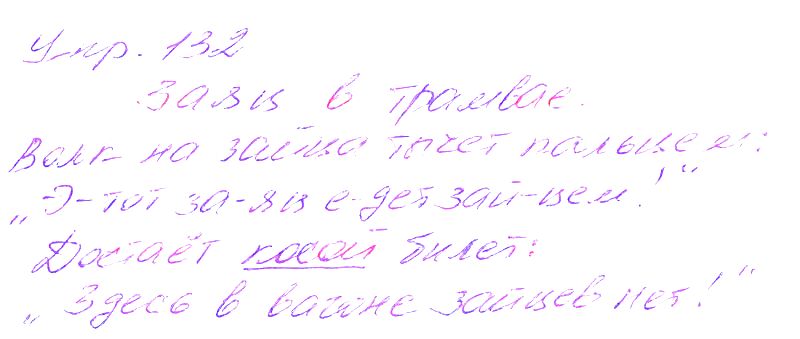 Упр. 132
Заяц в трамвае.
Волк на зайца тычет пальцем:
„Э-тот за-яц е-дет зай-цем!“
Достаёт косой билет:
„Здесь в вагоне зайцев нет!“